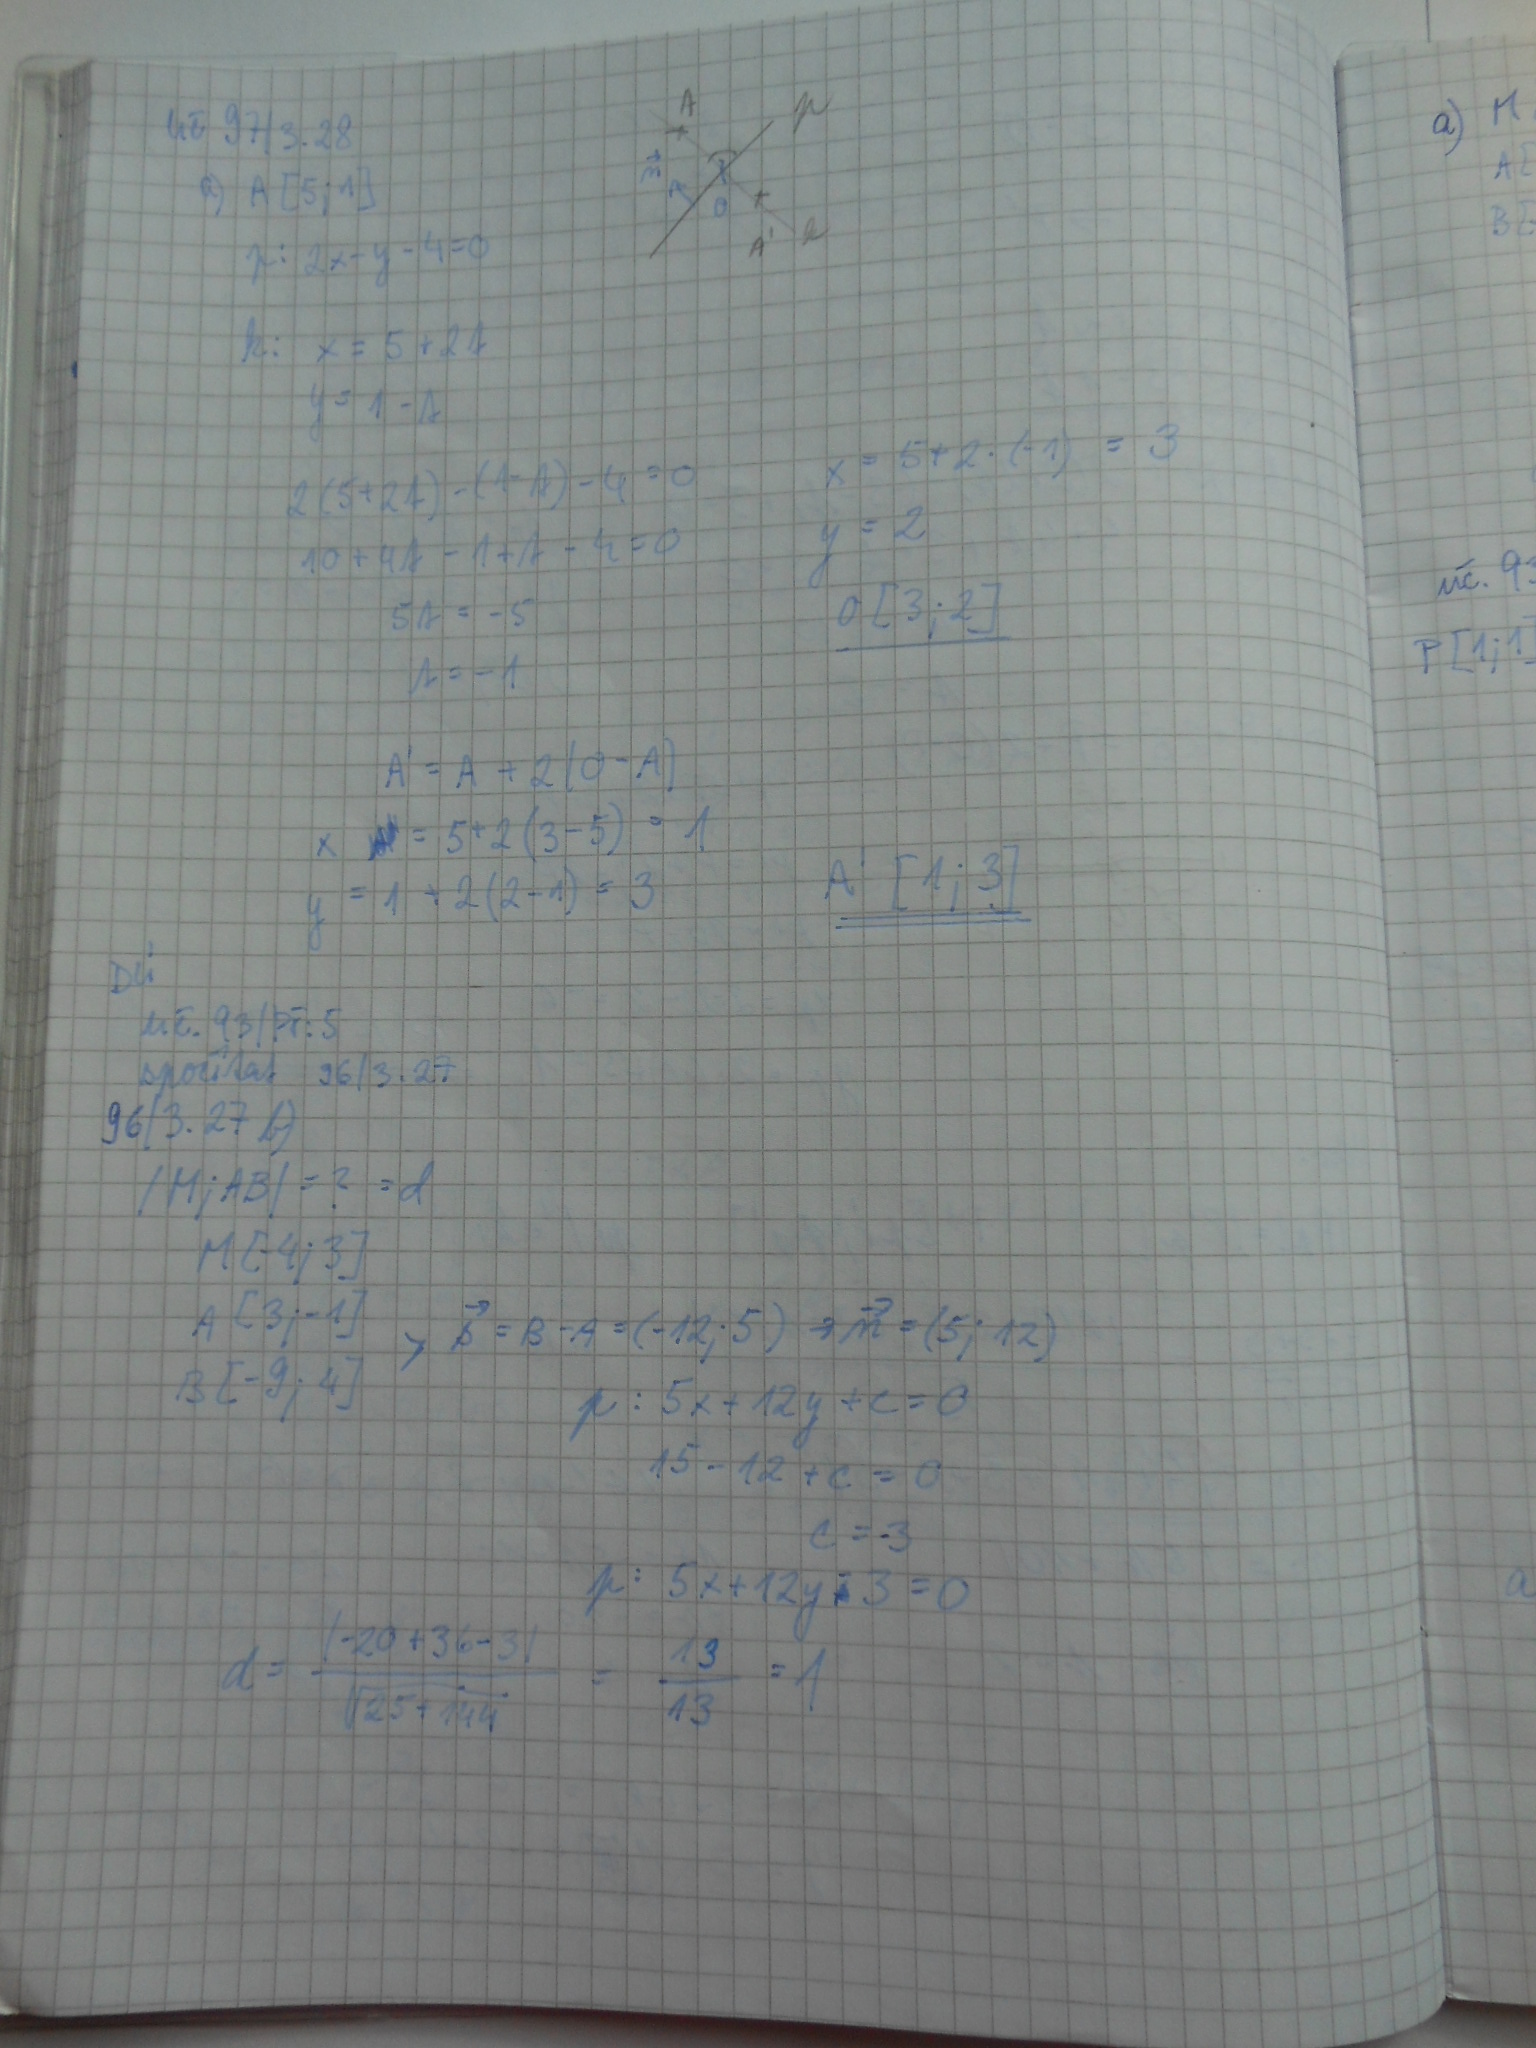 uč 97/3.28
a) A [5;1]
p: 2x-y-4=0
A
p
n⃗
O
A'
k
k: x = 5+2t
y = 1-t
2(5+2t)-(1-t)-4=0
10+4t-1+t-4=0
5t = -5
t = -1
x = 5+2·(-1) = 3
y = 2
O[3;2]
A' = A + 2(O-A)
x = 5+2(3-5) = 1
y = 1+2(2-1) = 3
A' [1;3]
DÚ
uč. 93/př. 5
spočítat 96/3.27
96/3.27 b)
|M;AB| = ? = d
M[-4;3]
A[3;-1]
B[-9;4]
s⃗ = B-A = (-12;5) → n⃗ = (5;12)
p: 5x+12y+c=0
15-12+c=0
c=-3
p: 5x+12y-3=0
d = |-20+36-3| / √25+144 = 13/13 = 1
a) M
A[
B[
uč. 93
P[1;1]
a